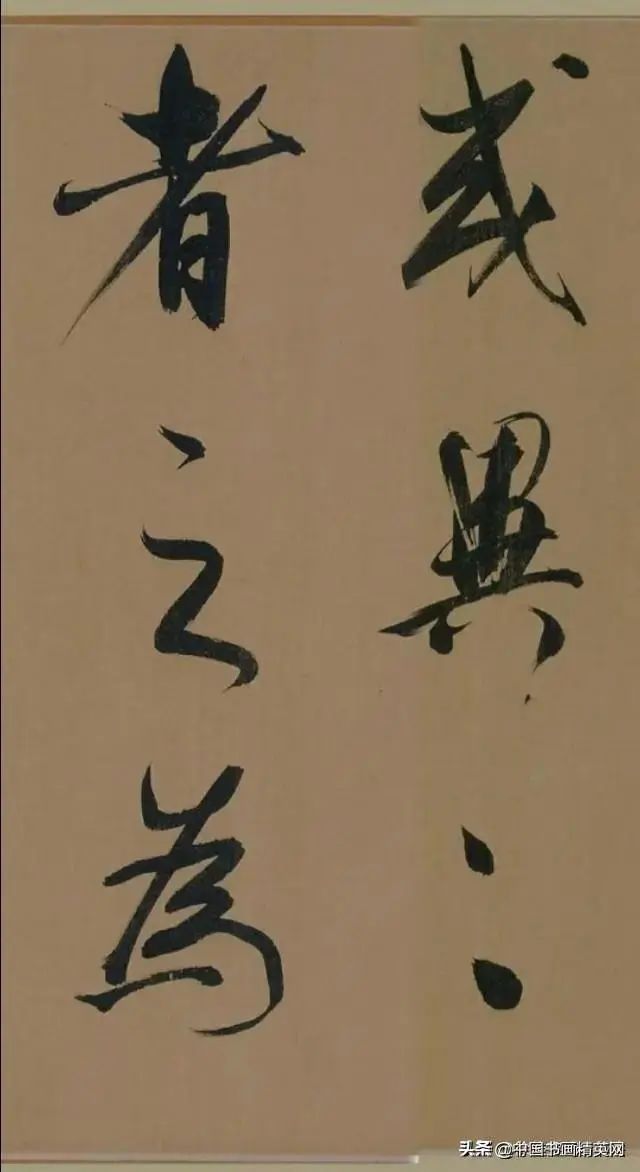 或異二
者之為
头条 @中国书画精英网